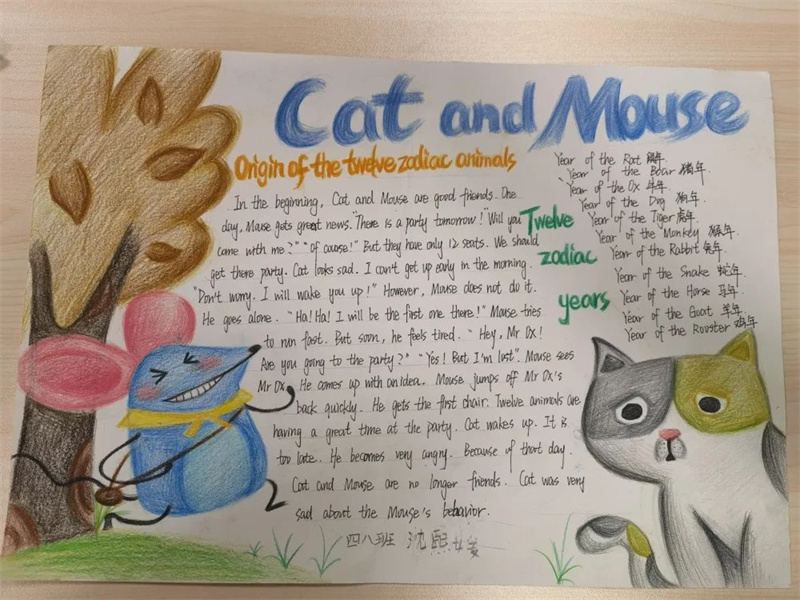 Cat and Mouse
Origin of the twelve zodiac animals
In the beginning, Cat and Mouse are good friends. One
day, Mouse gets great news. "There is a party tomorrow! Will you
came with me?" "Of course!" But they have only 12 seats. We should
get there party. Cat looks sad. I can't get up early in the morning.
"Don't worry. I will wake you up!" However, Mouse does not do it.
He goes alone. "Ha! Ha! I will be the first one there!" Mouse tries
to run fast. But soon, he feels tired. "Hey, Mr Ox!
Are you going to the party?" "Yes! But I'm lost". Mouse sees
Mr Ox. He comes up with an idea. Mouse jumps off Mr Ox's
back quickly. He gets the first chair. Twelve animals are
having a great time at the party. Cat wakes up. It is
too late. He becomes very angry. Because of that day.
Cat and Mouse are no longer friends. Cat was very
sad about the Mouse's behavior.
四八班 沈熙
Twelve
zodiac
years
Year of the Rat 鼠年
Year of the Boar 猪年
Year of the Ox 牛年
Year of the Dog 狗年
Year of the Tiger 虎年
Year of the Monkey 猴年
Year of the Rabbit 兔年
Year of the Snake 蛇年
Year of the Horse 马年
Year of the Goat 羊年
Year of the Rooster 鸡年